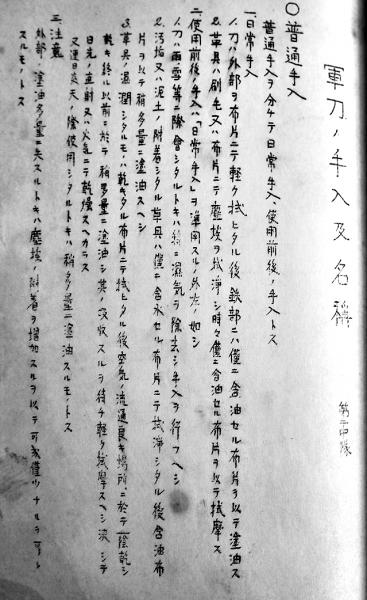 軍刀ノ手入及名稱
〇普通手入
普通手入ヲ分チテ日常手入、使用前後ノ手入トス
一、日常手入
1.刀ハ外部ヲ布片ニテ軽ク拭ヒタル後鉄部ニハ僅ニ含油セル布片ヲ以テ塗油ス
2.革具ハ刷毛又ハ布片ニテ塵埃ヲ拭浄シ時々僅ニ含油セル布片ヲ以テ拭摩ス
二、使用前後ノ手入ハ「日常手入」ヲ準用スルノ外左ノ如シ
1.刀ハ雨雪等ニ際會シタルトキハ特ニ濕気ヲ除去シ手入ヲ行フヘシ
2.汚垢又ハ泥土ノ附着シタル革具ハ僅ニ含水セル布片ニテ拭浄シタル後含油布
片ヲ以テ稍多量ニ塗油スヘシ
3.革具濕潤シタルモノハ乾キタル布片ニテ拭ヒタル後空気ノ流通良キ場所ニ於テ陰乾シ
乾キ終ル以前ニ於テ稍多量ニ塗油シ其ノ吸收スルヲ待チ軽ク拭摩スヘシ決シテ
日光ノ直射又ハ火気ニテ乾燥スヘカラス
又連日炎天ノ際使用シタルトキハ稍多量ニ塗油スルモノトス
三、注意
外部ノ塗油多量ニ失スルトキハ塵埃ノ附着ヲ増加スルヲ以テ可成僅少ナルヲ可ト
スルモノトス